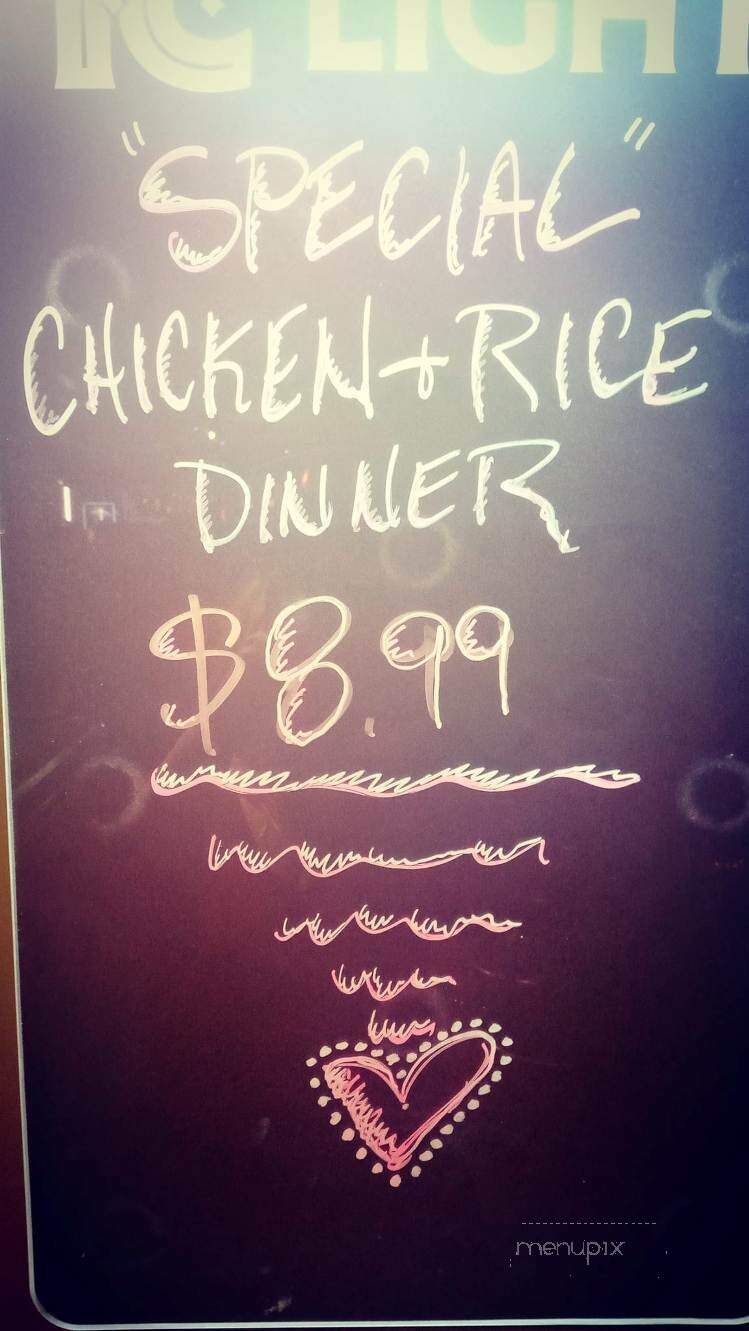 IC LIGHT
"SPECIAL"
CHICKEN + RICE
DINNER
$8.99
menupix